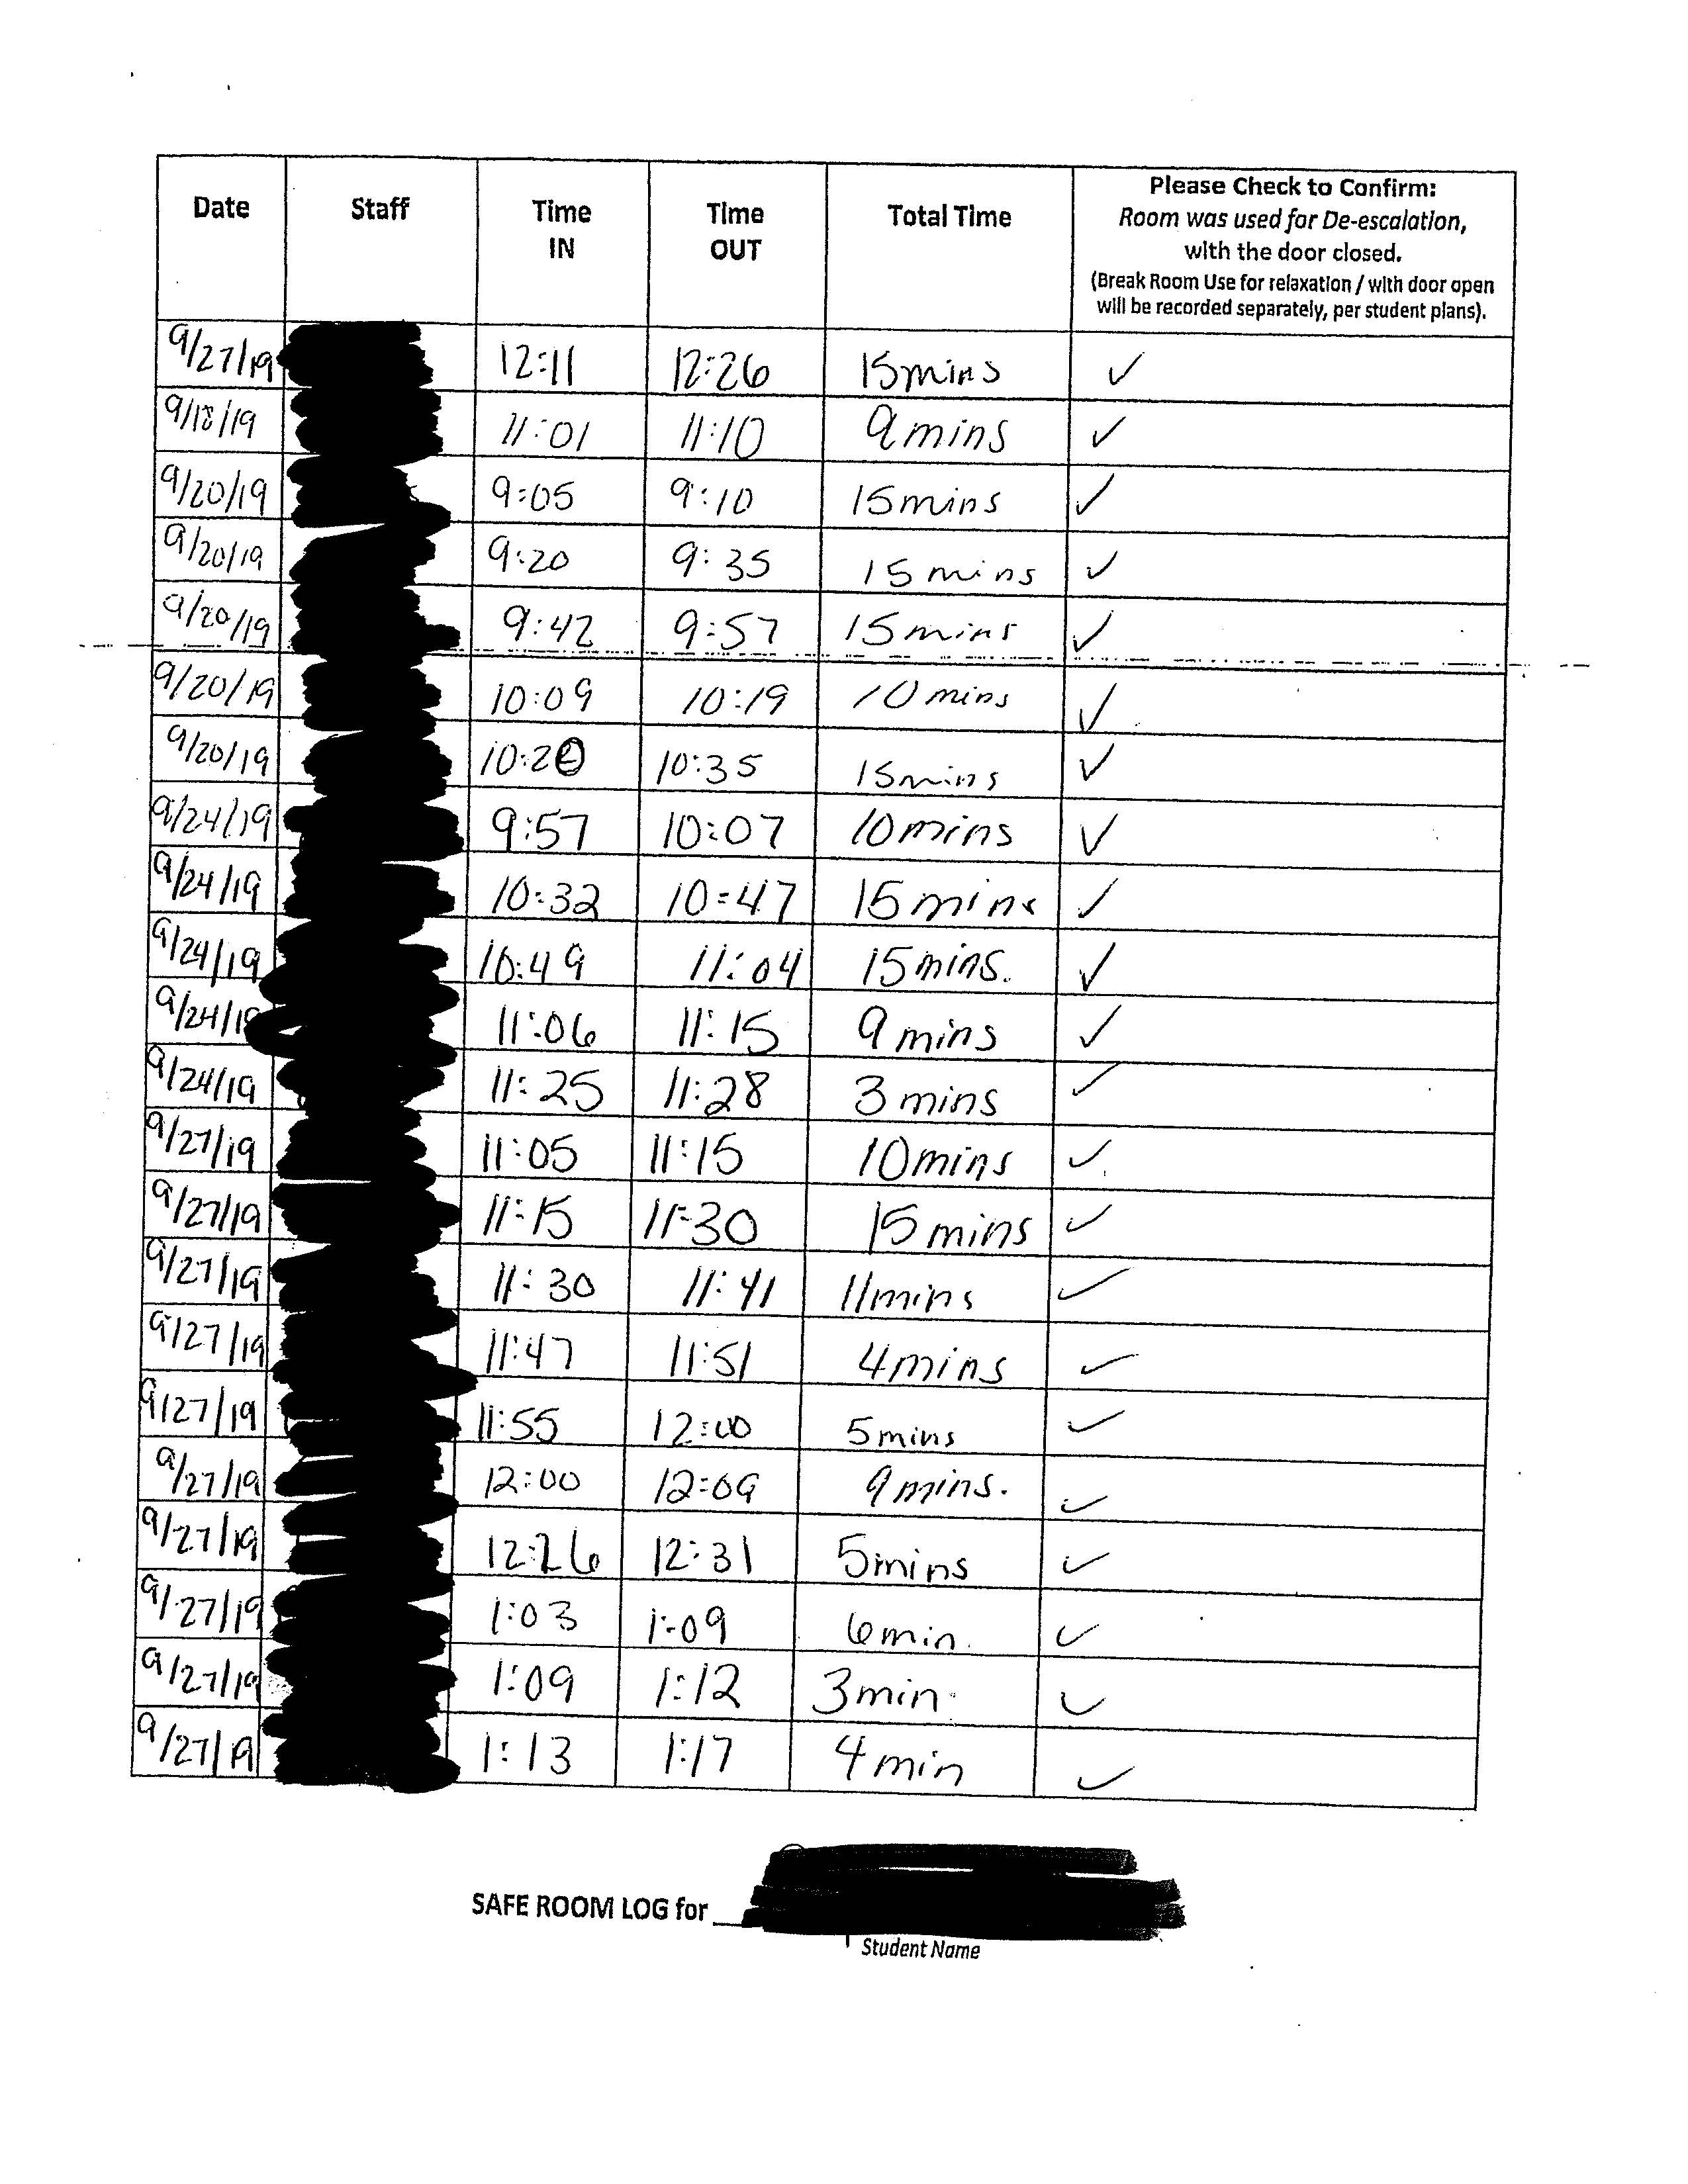 Date Staff Time IN Time OUT Total Time Please Check to Confirm:
Room was used for De-escalation,
with the door closed.
(Break Room Use for relaxation / with door open
will be recorded separately, per student plans).
9/27/19 12:11 12:26 15mins ✓
9/18/19 11:01 11:10 9mins ✓
9/20/19 9:05 9:10 15mins ✓
9/20/19 9:20 9:35 15 mins ✓
9/20/19 9:42 9:57 15 mins ✓
9/20/19 10:09 10:19 10 mins ✓
9/20/19 10:20 10:35 15mins ✓
9/24/19 9:57 10:07 10mins ✓
9/24/19 10:32 10:47 15 mins ✓
9/24/19 10:49 11:04 15mins. ✓
9/24/19 11:06 11:15 9 mins ✓
9/24/19 11:25 11:28 3 mins ✓
9/27/19 11:05 11:15 10mins ✓
9/27/19 11:15 11:30 15 mins ✓
9/27/19 11:30 11:41 11mins ✓
9/27/19 11:47 11:51 4mins ✓
9/27/19 11:55 12:00 5mins ✓
9/27/19 12:00 12:09 9 mins. ✓
9/27/19 12:26 12:31 5mins ✓
9/27/19 1:03 1:09 6min. ✓
9/27/19 1:09 1:12 3min. ✓
9/27/19 1:13 1:17 4 min ✓
SAFE ROOM LOG for
Student Name